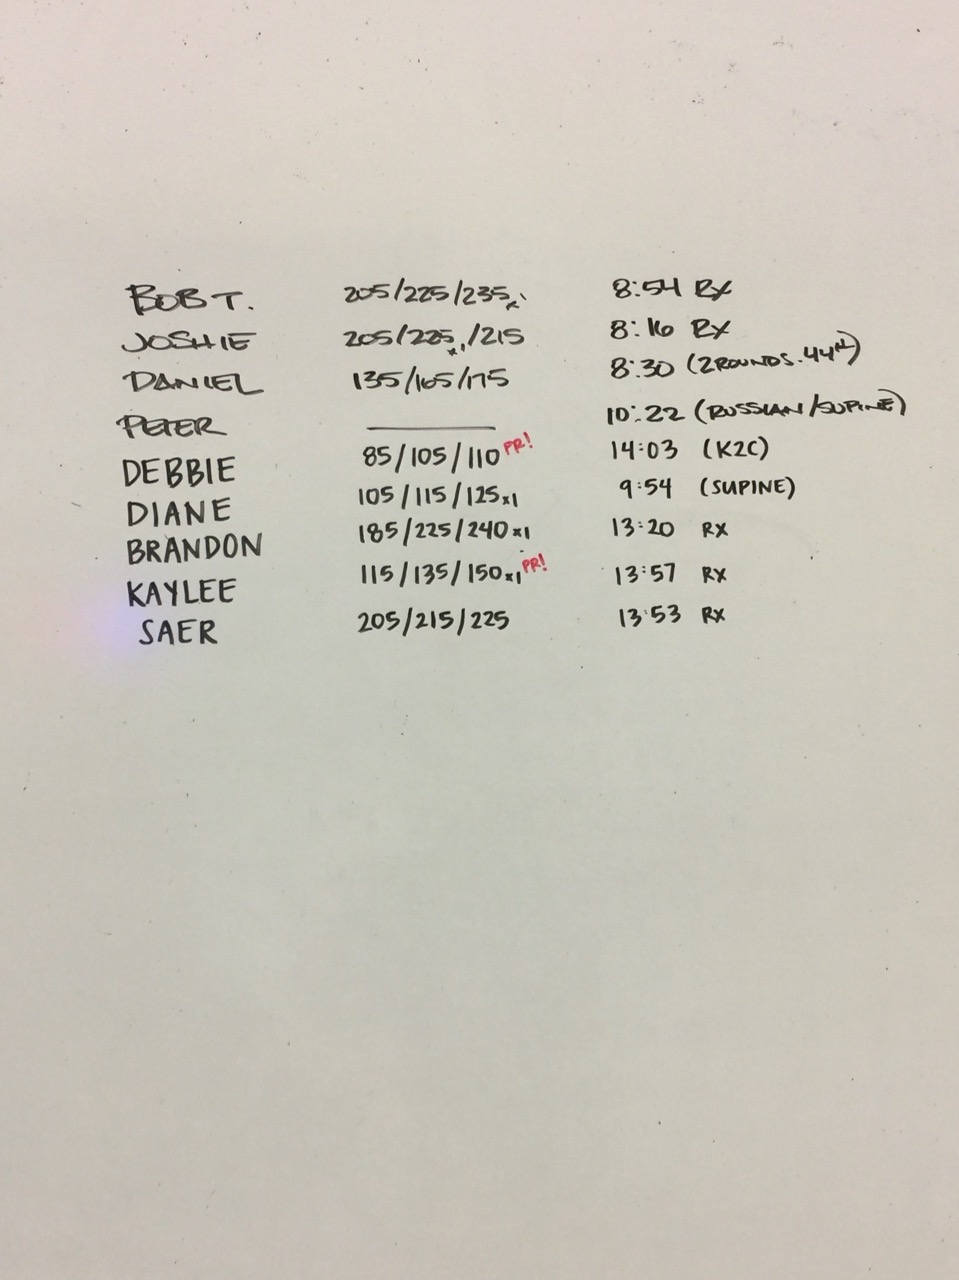 BOB T. 205/225/235x1 8:54 RX
JOSHIE 205/225x1/215 8:16 RX
DANIEL 135/165/175 8:30 (2 ROUNDS. 44#)
PETER 10:22 (RUSSIAN/SUPINE)
DEBBIE 85/105/110 PR! 14:03 (K2C)
DIANE 105/115/125x1 9:54 (SUPINE)
BRANDON 185/225/240x1 13:20 RX
KAYLEE 115/135/150x1 PR! 13:57 RX
SAER 205/215/225 13:53 RX